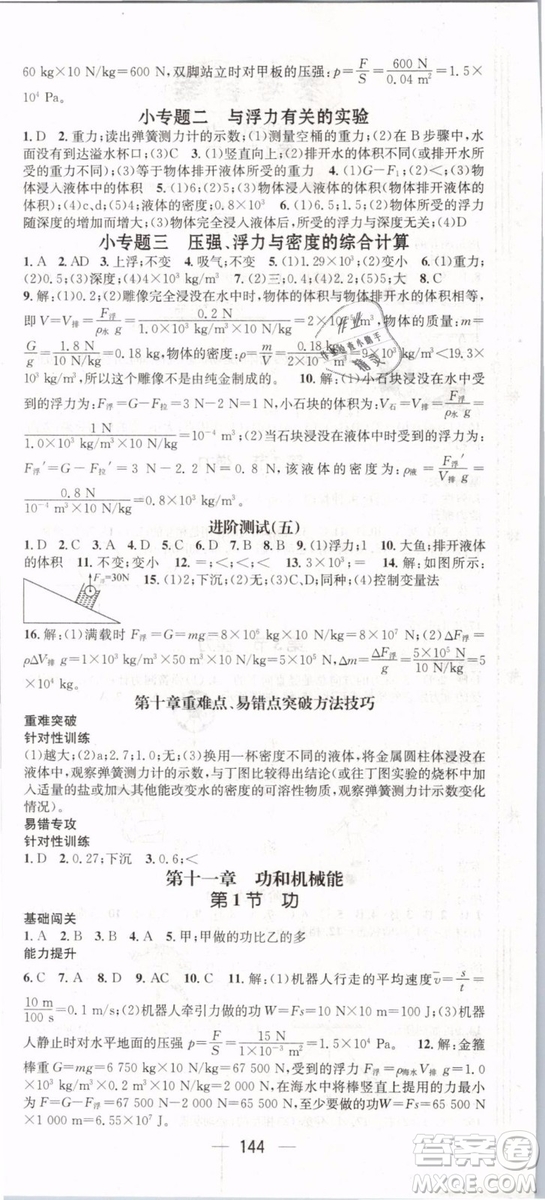 60 kg×10 N/kg=600 N,双脚站立时对甲板的压强:p=F/S=600 N/0.04 m²=1.5×
10⁴ Pa。
小专题二 与浮力有关的实验
1. D 2. 重力;读出弹簧测力计的示数;(1)测量空桶的重力;(2)在B步骤中,水
面未到达溢水杯口;(3)C 3. (1)竖直向上;(2)排开水的体积不同;(3)排开水所
受的重力;(3)等于物体排开液体所受的重力 4. (1)0.4;(2)0.8×10³;(3)
物体浸入液体中的体积 5. (1)0.6;(4)②物体浸入液体的体积(排开液体的体
积);③液体的密度;(5)0.8×10³ 6. (1)6.5、1.5;(2)物体所受的浮力
随深度的增加而增大;(3)物体完全浸没后所受浮力大小与深度无关;(4)D
小专题三 压强、浮力与密度的综合计算
1. A 2. AD 3. 上浮;不变 4. 吸气;不变 5. (1)1.29×10³;(2)变小 6.
(2)0.5;(3)深度;(4)2.5×10³ 7. (2)三;(4)0.4;大 8. C
9. 解:(2)雕像完全浸没在水中时,物体的体积与物体排开水的体积相等,
即V=V排=F浮/ρ水 g=0.2 N/1.0×10³ kg/m³×10 N/kg 物体的质量:m=
G/g=1.8 N/10 N/kg=0.18 kg,物体的密度:ρ=m/V=0.18 kg =9×10³ kg/m³<19.3×
10³ kg/m³,所以这个雕像不是由纯金制成的。 10. 解:(1)小石块浸没在水中受
到的浮力为:F浮=G−F拉=1 N;小石块的体积为:V石=V排=F浮/ρ水 g=
1 N/1.0×10³ kg/m³×10 N/kg=10⁻⁴ m³;(2)当石块浸没在液体中受到的浮力:
F浮′=G−F拉′=1.8 N−1 N=0.8 N,该液体的密度为:ρ液=F浮′/V排 g=
0.8 N/10⁻⁴ m³×10 N/kg=0.8×10³ kg/m³。
进阶测试(五)
1. D 2. D 3. C 4. B 5. A 6. A 7. B 8. D 9. (1)浮力;1 10. 大鱼;排开液体
的体积 11. 不变;变小 12. =;<;<;< 13. 3×10³;= 14. 如图所示:
F浮=30N
15. (1)2;下沉;(2)无关;(3)A、D、E;同种;(4)控制变量法
16. 解:(1)满载时 F浮=G=mg=8×10⁶ kg×10 N/kg=8×10⁷ N;(2)F浮=
ρΔV排g=1×10³ kg/m³×50 m³×10 N/kg=5×10⁵ N,Δm=ΔG/g=5×10⁵ N/10 N/kg=
5×10⁴ kg。
第十章重难点、易错点突破方法技巧
重难突破
针对性训练
(1)越大;(2)a;2.7;1.0;(3)无关;(4)换用一杯密度不同的液体,将金属圆柱体浸没在
液体中,观察弹簧测力计的示数,与丁图比较得出结论(或往丁图实验的烧杯中加
入适量的盐或加入其他能改变水的密度的可溶性物质,观察弹簧测力计示数变化
情况)。
易错专攻
针对性训练
1. D 2. 0.27;下沉 3. 0.6;<
第十一章 功和机械能
第1节 功
基础闯关
1. A 2. B 3. A 4. A 5. 甲;甲做的功比乙的多
能力提升
6. C 7. D 8. D 9. AC 10. C 11. 解:(1)机器人行走的平均速度v=s/t=
10 m/100 s=0.1 m/s;(2)机器人牵引力做的功W=Fs=10 N×10 m=100 J;(3)机器
人静止时对水平地面的压强p=F/S=15 N/1×10⁻³ m²=1.5×10⁴ Pa。 12. 解:金箍
棒重G=mg=6 750 kg×10 N/kg=67 500 N,在水中受到的浮力F浮=ρ海水V排g=
1×10³ kg/m³×0.2 m³×10 N/kg=2 000 N,在海水中将棒竖直向上提的最小力
F=G−F浮=67 500 N−2 000 N=65 500 N,至少要做的功W=Fs=65 500 N×
100 m=6.55×10⁶ J。
144
答案圈
MXQE.COM